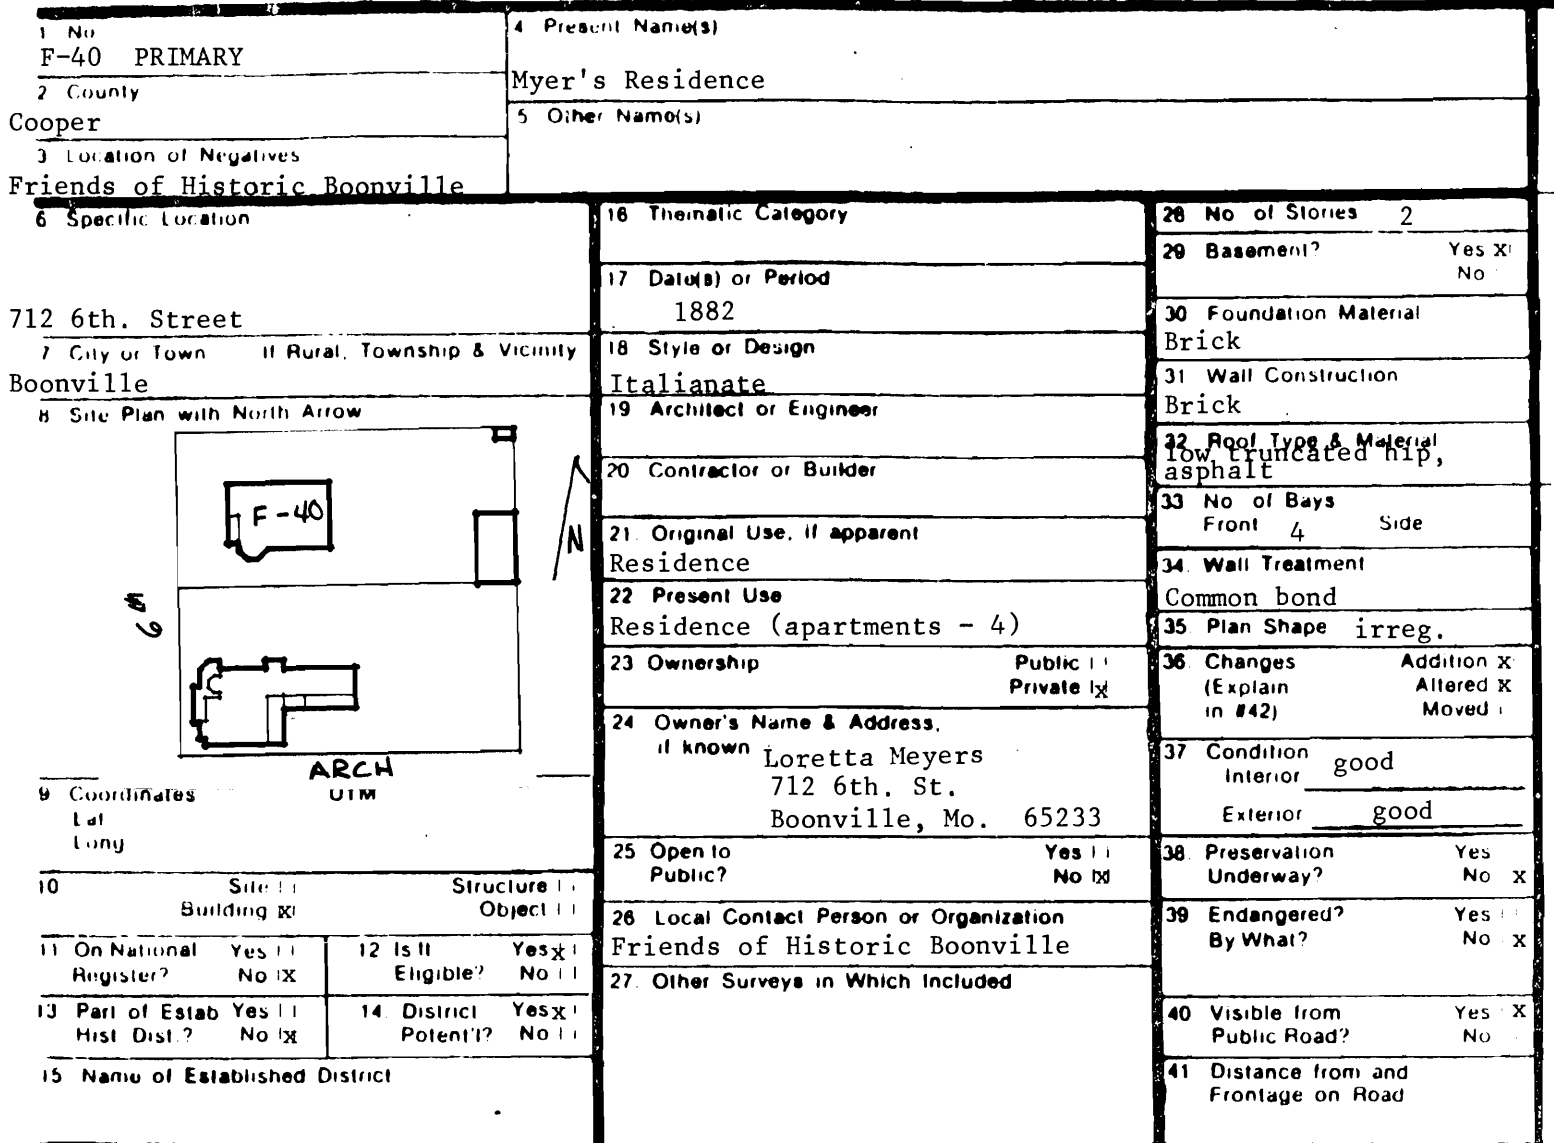 1 No
F-40 PRIMARY
2 County
Cooper
3 Location of Negatives
Friends of Historic Boonville
4 Present Name(s)
Myer's Residence
5 Other Name(s)
6 Specific Location
712 6th. Street
7 City or Town If Rural, Township & Vicinity
Boonville
8 Site Plan with North Arrow
F-40
N
6th
ARCH
9 Coordinates UTM
Lat
Long
10 Site Structure
Building X Object
11 On National Yes
Register? No X
12 Is It Yes X
Eligible? No
13 Part of Estab Yes
Hist. Dist.? No X
14. District Yes X
Potent'l? No
15 Name of Established District
16 Thematic Category
17 Date(s) or Period
1882
18 Style or Design
Italianate
19 Architect or Engineer
20 Contractor or Builder
21. Original Use, if apparent
Residence
22 Present Use
Residence (apartments - 4)
23 Ownership Public
Private X
24 Owner's Name & Address,
if known
Loretta Meyers
712 6th. St.
Boonville, Mo. 65233
25 Open to Yes
Public? No X
26 Local Contact Person or Organization
Friends of Historic Boonville
27. Other Surveys in Which Included
28 No of Stories 2
29 Basement? Yes X
No
30 Foundation Material
Brick
31 Wall Construction
Brick
32 Roof Type & Material
low truncated hip,
asphalt
33 No of Bays
Front 4 Side
34. Wall Treatment
Common bond
35 Plan Shape irreg.
36. Changes Addition X
(Explain Altered X
in #42) Moved
37 Condition
Interior good
Exterior good
38. Preservation Yes
Underway? No X
39 Endangered? Yes
By What? No X
40 Visible from Yes X
Public Road? No
41 Distance from and
Frontage on Road